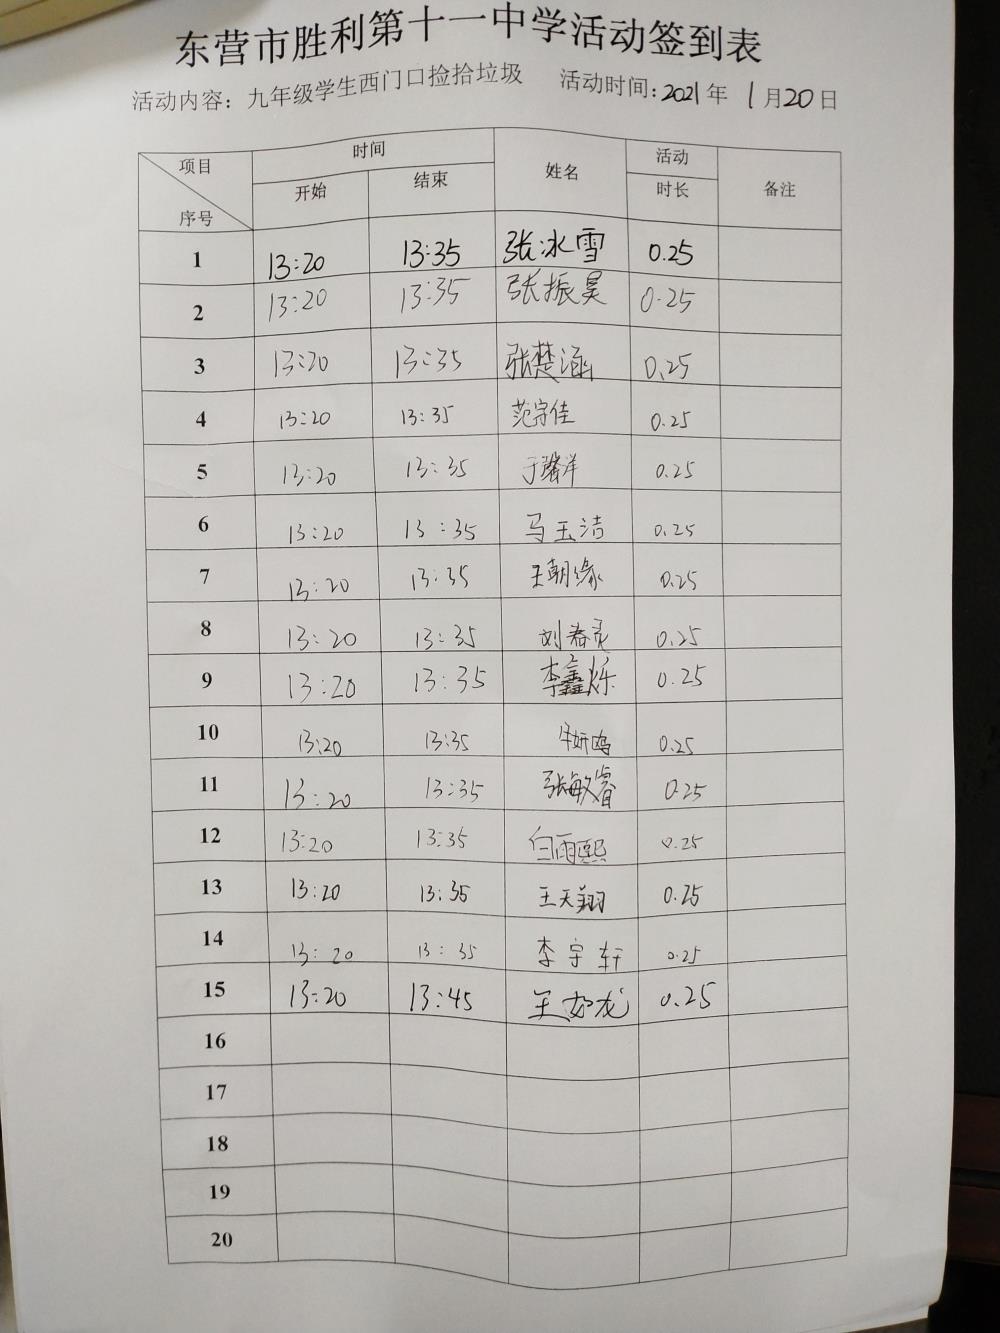 东营市胜利第十一中学活动签到表
活动内容：九年级学生西门口捡拾垃圾 活动时间：2021年 1月20日
项目 时间 姓名 活动 备注
序号 开始 结束 时长
1 13:20 13:35 张冰雪 0.25
2 13:20 13:35 张振昊 0.25
3 13:20 13:35 张楚涵 0.25
4 13:20 13:35 范宇佳 0.25
5 13:20 13:35 于馨洋 0.25
6 13:20 13:35 马玉洁 0.25
7 13:20 13:35 王朝缘 0.25
8 13:20 13:35 刘春灵 0.25
9 13:20 13:35 李鑫烁 0.25
10 13:20 13:35 0.25
11 13:20 13:35 张敏睿 0.25
12 13:20 13:35 白雨熙 0.25
13 13:20 13:35 王天翔 0.25
14 13:20 13:35 李宇轩 0.25
15 13:20 13:45 0.25
16
17
18
19
20